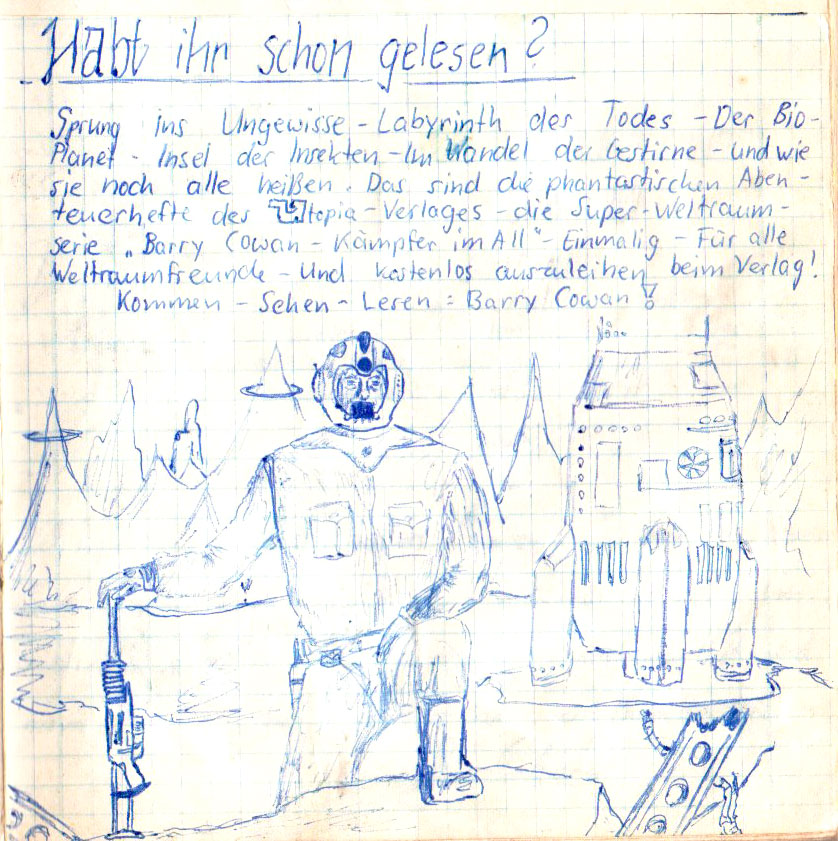 Habt ihr schon gelesen?
Sprung ins Ungewisse - Labyrinth des Todes - Der Bio-
Planet - Insel der Insekten - Im Wandel der Gestirne - und wie
sie noch alle heißen. Das sind die phantastischen Aben-
teuerhefte des Utopia-Verlages - die Super-Weltraum-
serie „Barry Cowan - Kämpfer im All" - Einmalig - Für alle
Weltraumfreunde - Und kostenlos auszuleihen beim Verlag!
Kommen - Sehen - Lesen = Barry Cowan!